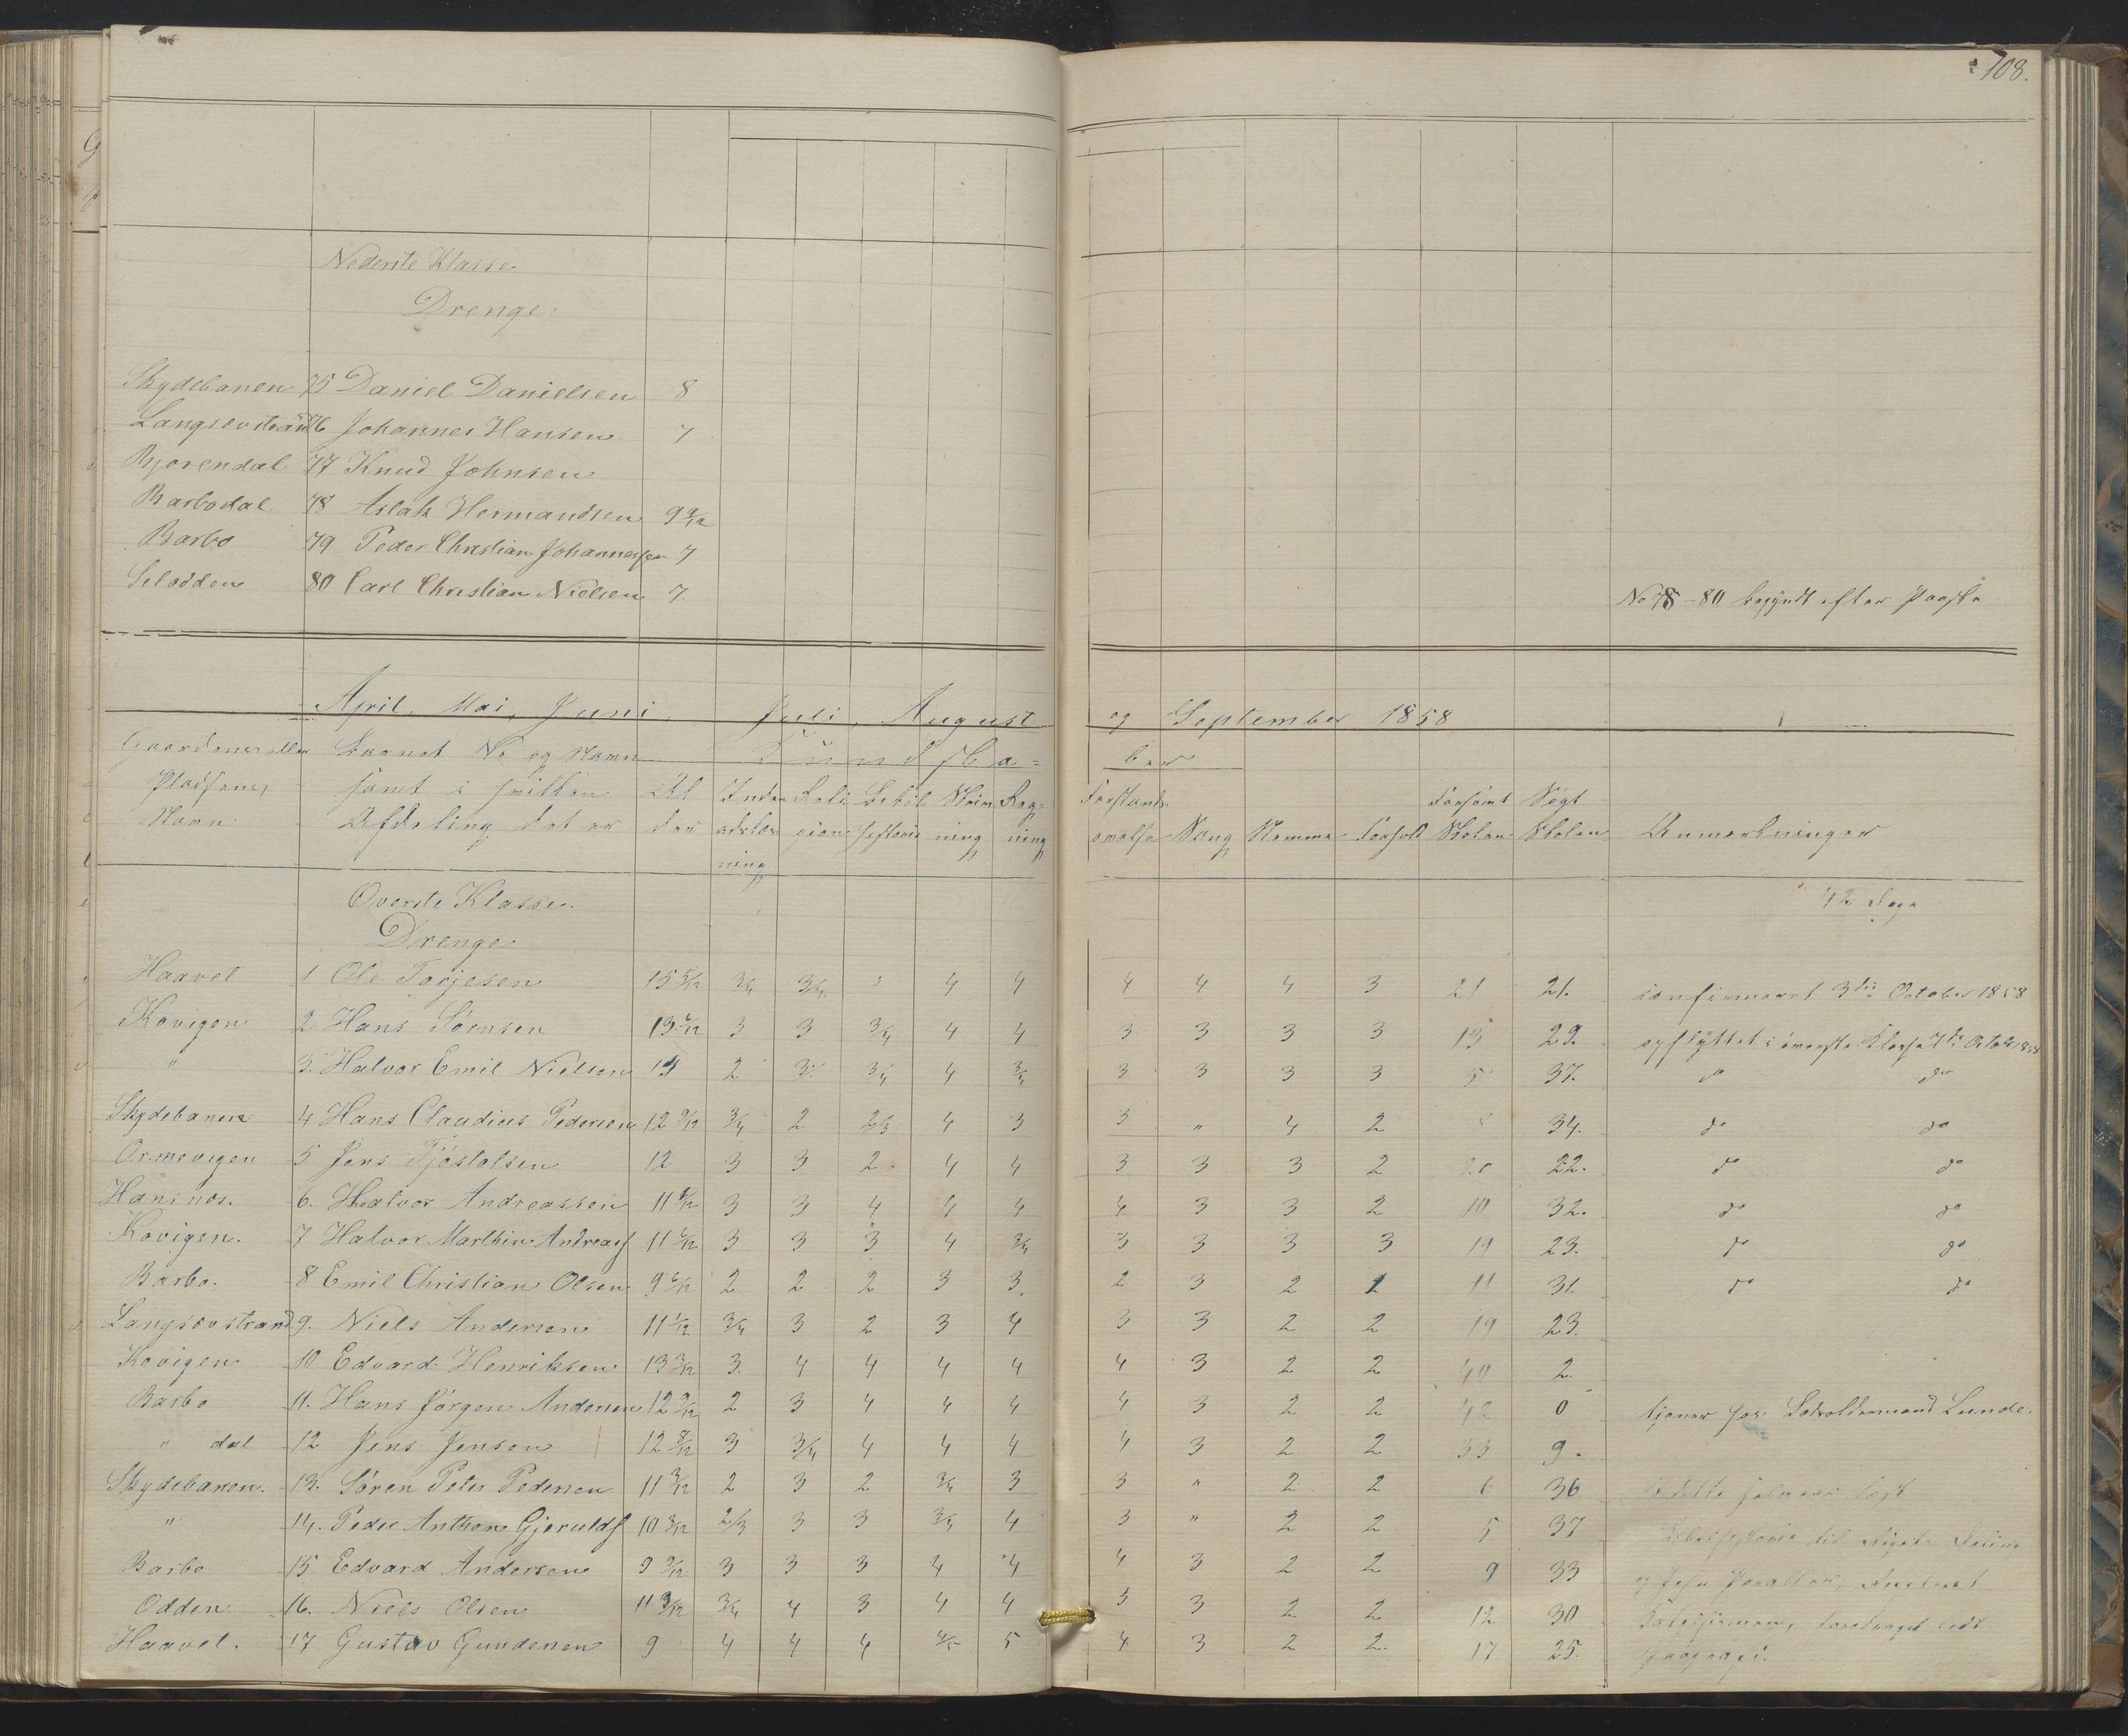 108.
Nederste Klasse
Drenge.
Skydebanen 75 Daniel Danielsen 8
Langsævstrand 76 Johannes Hansen 7
Bjorendal 77 Knud Johnsen
Barbodal 78 Aslak Hermandsen 9 9/12
Barbo 79 Peder Christian Johannessen 7
Selodden 80 Carl Christian Nielsen 7. No 78-80 begyndt efter Paaske
April, Mai, Juni Juli, August og September 1858
Gaardens eller Barnets No og Navn Kundska= ber
Pladsens samt i hvilken Al Inden Reli Bibel Skriv Reg= Forstands Forsømt Søgt
Navn Afdeling det er der adslæs gion historie ning ning øvelse Sang Stemme Forhold Skolen Skolen Anmærkninger
ning
Øverste Klasse. 42 Dage
Drenge.
Haavet 1 Ole Torjesen 15 5/12 3/4 3/4 4 4 4 4 4 3 21 21. confirmeret 3die October 1858
Kovigen 2. Hans Sørensen 13 6/12 3 3 3/4 4 4 3 3 3 3 13 29. opflyttet i øverste Klasse 7de Octob 1858
" 3. Halvor Emil Nielsen 14 2 3 3/4 4 3/4 3 3 3 3 5 37. do do
Skydebanen 4 Hans Claudius Pedersen 12 9/12 3/4 2 2/3 4 3 3 " 4 2 8 34. do do
Ormevigen 5 Jens Tjøstolsen 12 3 3 2 4 4 3 3 3 2 20 22. do do
Hansnæs. 6. Halvor Andreassen 11 8/12 3 3 4 4 4 4 3 3 2 10 32. do do
Kovigen. 7 Halvor Marthin Andreass 11 6/12 3 3 3 4 3/4 3 3 3 3 19 23. do do
Barbo. 8 Emil Christian Olsen 9 6/12 2 2 2 3 3. 2 3 2 2 11 31. do do
Langsævstrand 9. Niels Andersen 11 1/12 3/4 3 2 3 4 3 3 2 2 19 23.
Kovigen 10 Edvard Henriksen 13 3/12 3. 4 4 4 4 4 3 2 2 40 2.
Barbo 11. Hans Jørgen Andersen 12 9/12 2 3 4 4 4 4 3 2 2 42 0 tjener hos Lodsoldermand Lunde.
" dal 12 Jens Jensen 12 8/12 3 3/4 4 4 4 4 3 2 2 33 9.
Skydebanen. 13. Søren Peter Pedersen 11 3/12 2 3 2 3/4 3 3 " 2 2 6 36 I dette halvaar læst
" 14. Peder Anthon Gjeruldss 10 8/12 2/3 3 3 3/4 4 3 " 2 2 5 37 Bibelhistorie til
Barbo 15 Edvard Andersen 9 9/12 3 3 3 4 4 4 3 2 2 9 33 og Jesu Paraboler,
Odden 16. Niels Olsen 11 9/12 3/4 4 3 4 4 3 3 2 2 12 30
Haavet. 17 Gustav Gundersen 9 4 4 4 4/5 5 4 3 2 2. 17 25. Geografi.